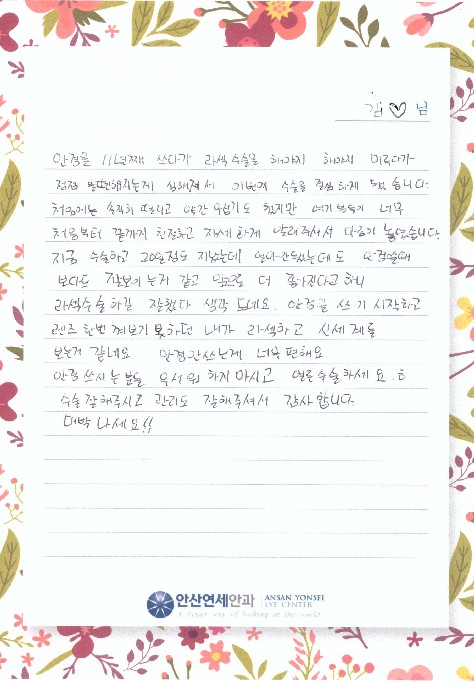 김♡님
안경을 11년째 쓰다가 라섹수술을 해야지 해야지 미루다가
점점 불편해지는게 심해져서 이번에 수술을 결심하게 되었습니다.
처음에는 솔직히 떨리고 약간 무섭기도 했지만 여기 분들이 너무
처음부터 끝까지 친절하고 자세하게 알려주셔서 마음이 놓였습니다.
지금 수술하고 20일정도 지났는데 얼마 안됐는데도 안경쓸때
보다도 잘보이는거 같고 앞으로 더 좋아진다고 하니
라섹수술 하길 잘했다 생각 드네요. 안경을 쓰기 시작하고
렌즈 한번 껴보기 못하던 내가 라섹하고 신세계를
보는거 같네요 안경 안쓰는게 너무 편해요
안경 쓰시는 분들 무서워 하지 마시고 얼른 수술하세요.
수술 잘해주시고 관리도 잘해주셔서 감사합니다.
대박 나세요!!
안산연세안과 ANSAN YONSEI EYE CENTER
A better way of looking at the world